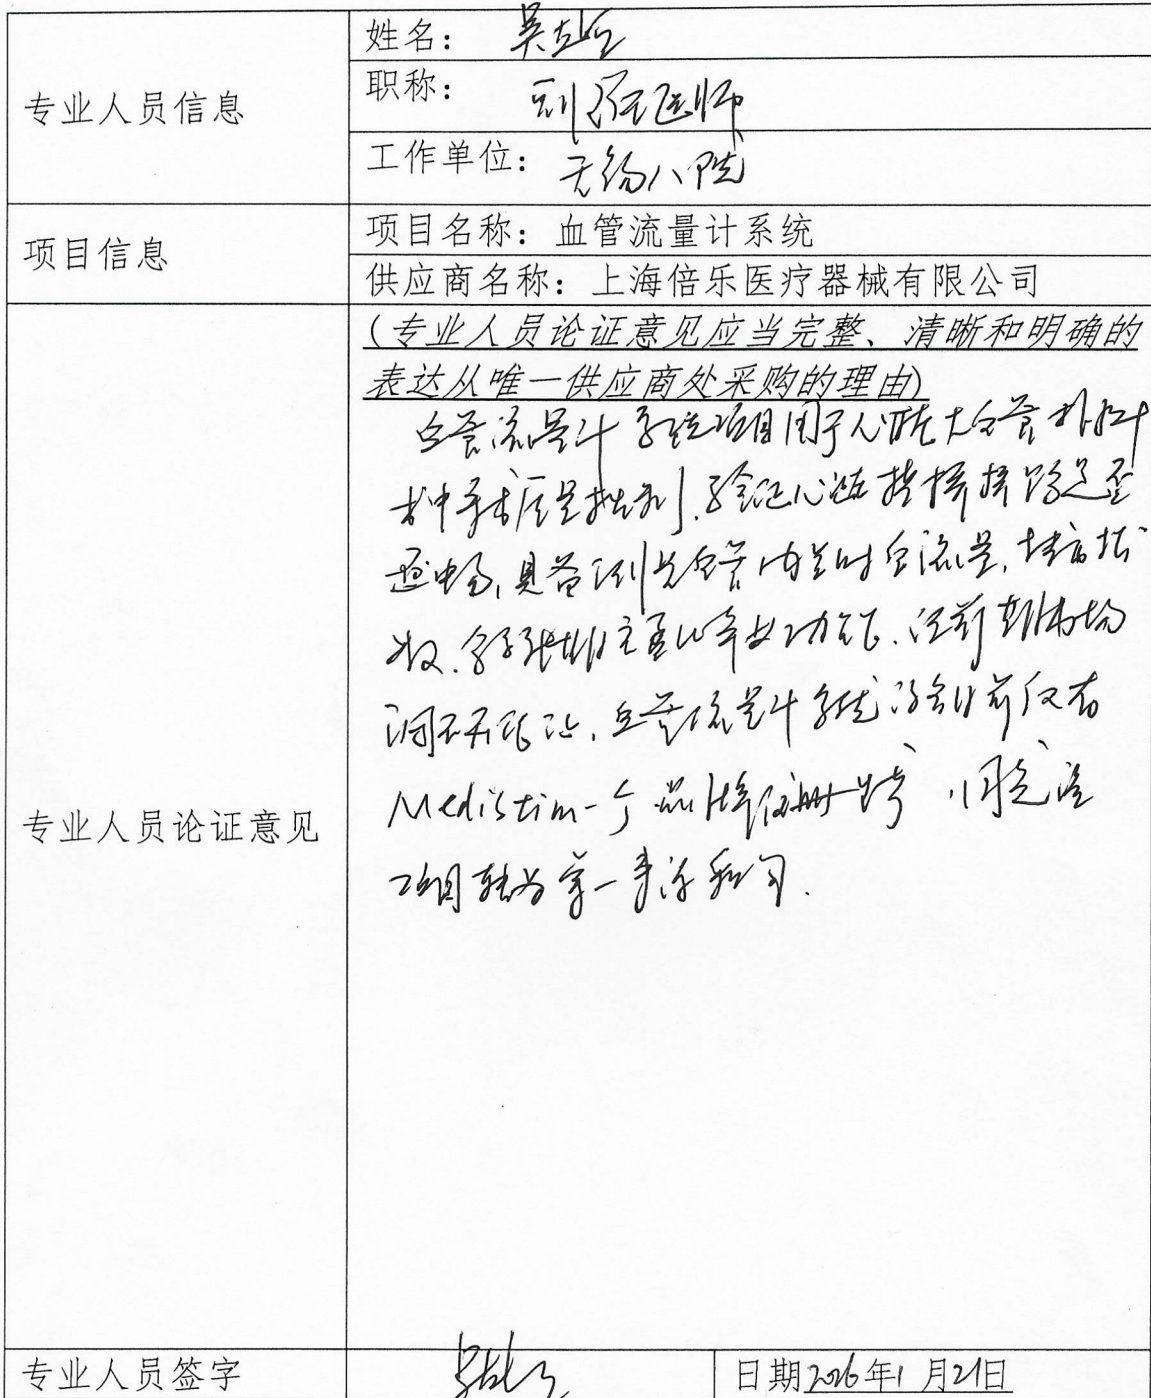 专业人员信息
姓名：吴
职称：副主任医师
工作单位：无锡八院
项目信息
项目名称：血管流量计系统
供应商名称：上海倍乐医疗器械有限公司
专业人员论证意见
（专业人员论证意见应当完整、清晰和明确的
表达从唯一供应商处采购的理由）
血管流量计系统项目用于心脏大血管外科手
术中手术质量控制，验证心脏搭桥桥路是否
通畅，具备测量血管内实时血流量，搏动指
数，舒张期充盈比率等功能，经前期市场
调研，血管流量计系统设备目前仅有
Medistim一个品牌注册，同意该
项目转为单一来源采购．
专业人员签字
日期2026年1月21日